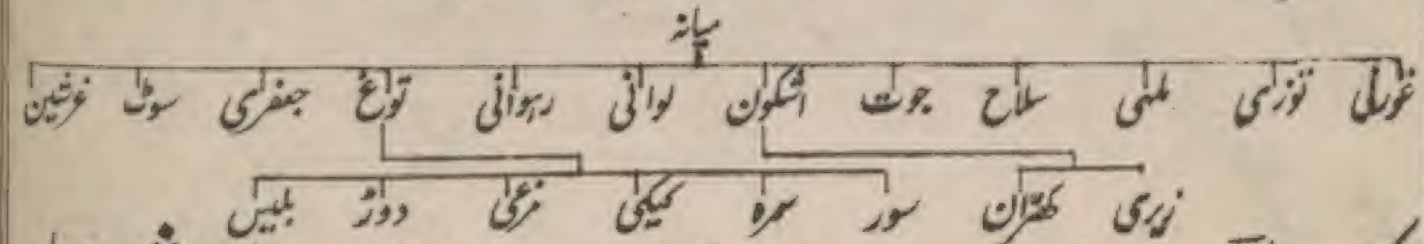 میانہ
غورنی توزی ملہی سلاح جوت اشکون لوانی رہوانی توغ جعفری سوٹ غرشین
زیری کھتران سور سمرہ کیکی مزعی دوڑ بلیس